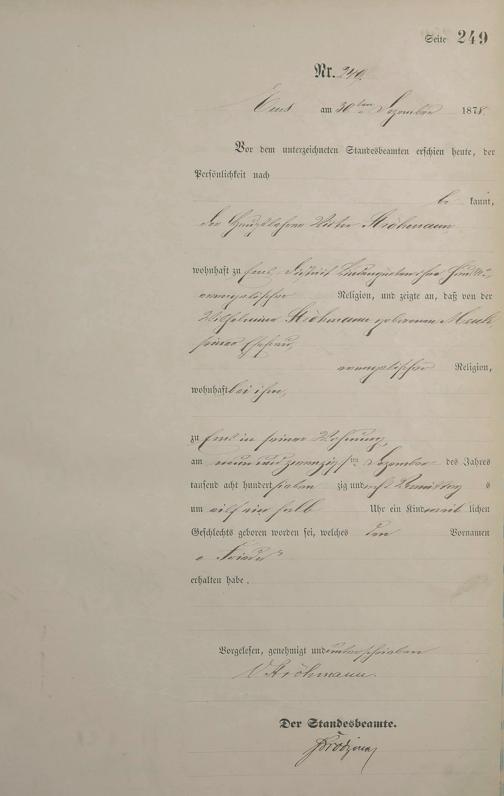 Seite 249
Nr. 240.
Ems am 30ten Dezember 1878.
Vor dem unterzeichneten Standesbeamten erschien heute, der
Persönlichkeit nach
be kannt,
der Hauptlehrer Victor Ströhmann
wohnhaft zu Ems,
evangelischer Religion, und zeigte an, daß von der
Wilhelmine Ströhmann geborenen
seiner Ehefrau,
evangelischer Religion,
wohnhaft bei ihm,
zu Ems in seiner Wohnung,
am neun und zwanzigsten Dezember des Jahres
tausend acht hundert sieben zig und acht Vormittag s
um elf ein halb Uhr ein Kind weib lichen
Geschlechts geboren worden sei, welches den Vornamen
erhalten habe.
Vorgelesen, genehmigt und unterschrieben
V. Ströhmann.
Der Standesbeamte.